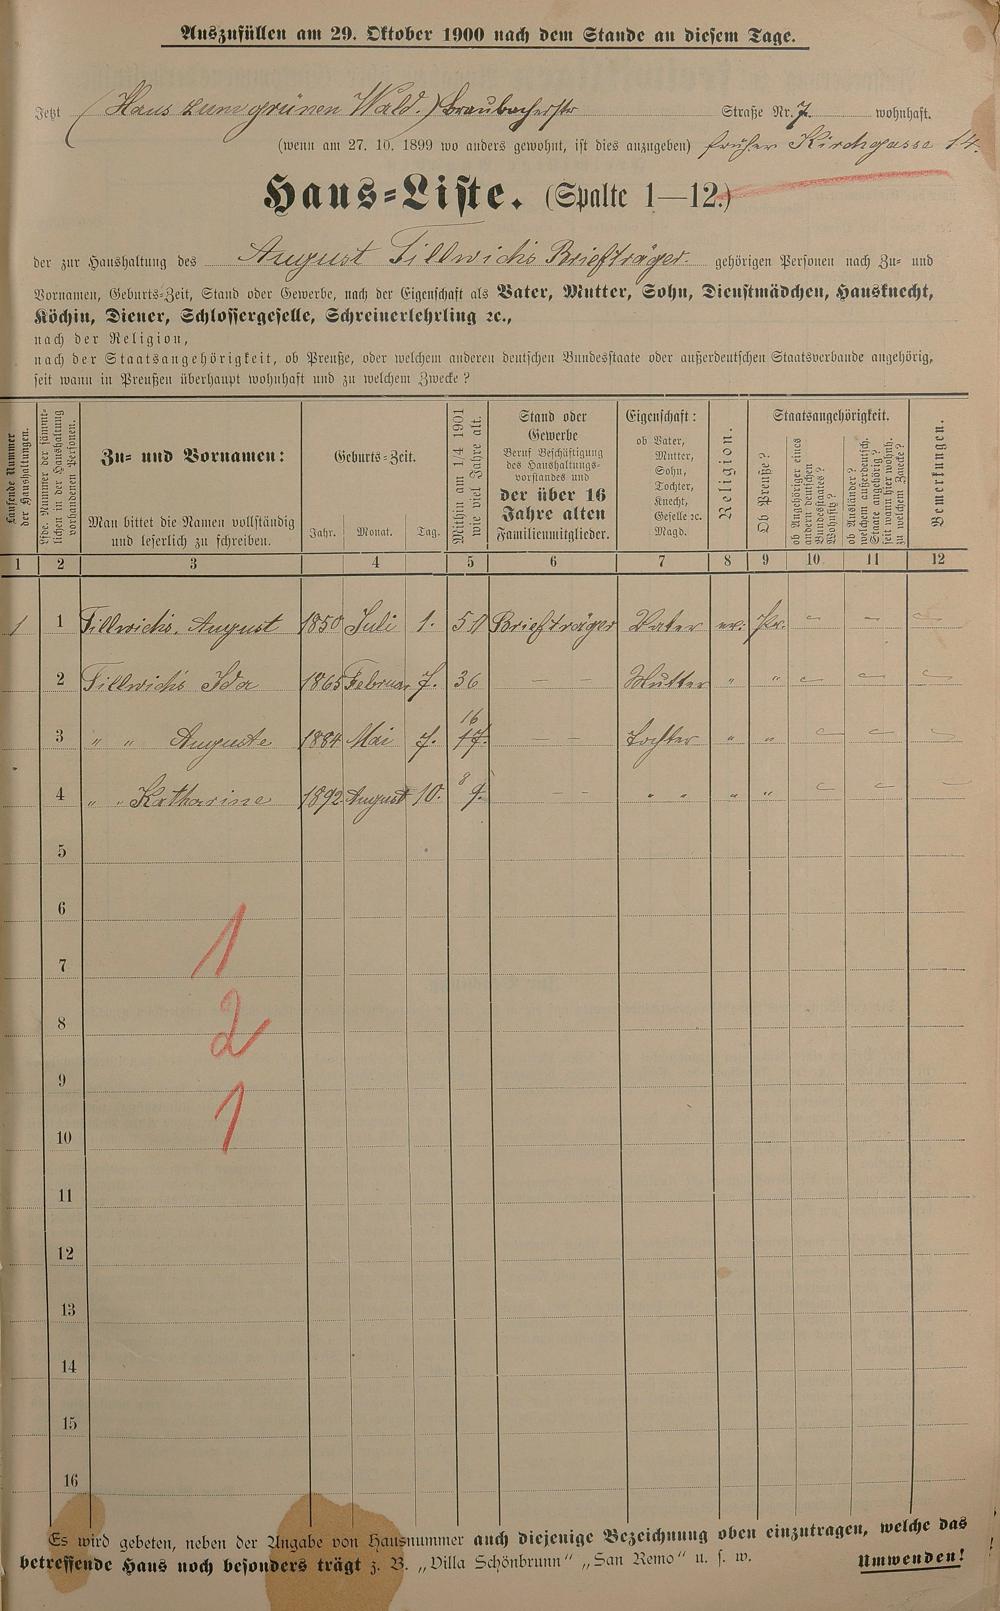 Auszufüllen am 29. Oktober 1900 nach dem Stande an diesem Tage.
Jetzt (Haus zum grünen Wald.) Braubacherstr Straße Nr. 7. wohnhaft.
(wenn am 27. 10. 1899 wo anders gewohnt, ist dies anzugeben) früher Kirchgasse 14.
Haus-Liste. (Spalte 1—12.)
der zur Haushaltung des August Tillwichs Briefträger. gehörigen Personen nach Zu- und
Vornamen, Geburts-Zeit, Stand oder Gewerbe, nach der Eigenschaft als Vater, Mutter, Sohn, Dienstmädchen, Hausknecht,
Köchin, Diener, Schlossergeselle, Schreinerlehrling ꝛc.,
nach der Religion,
nach der Staatsangehörigkeit, ob Preuße, oder welchem anderen deutschen Bundesstaate oder außerdeutschen Staatsverbande angehörig,
seit wann in Preußen überhaupt wohnhaft und zu welchem Zwecke?
Laufende Nummer
der Haushaltungen.
Lfde. Nummer der sämmt-
lichen in der Haushaltung
vorhandenen Personen.
Zu- und Vornamen:
Man bittet die Namen vollständig
und leserlich zu schreiben.
Geburts-Zeit.
Jahr. Monat. Tag.
Mithin am 1/4 1901
wie viel Jahre alt.
Stand oder
Gewerbe
Beruf Beschäftigung
des Haushaltungs-
vorstandes und
der über 16
Jahre alten
Familienmitglieder.
Eigenschaft:
ob Vater,
Mutter,
Sohn,
Tochter,
Knecht,
Geselle ꝛc.
Magd.
Religion.
Staatsangehörigkeit.
Ob Preuße?
ob Angehöriger eines
andern deutschen
Bundesstaates?
Wohnsitz?
ob Ausländer?
welchem außerdeutsch.
Staate angehörig?
seit wann hier wohnh.
zu welchem Zwecke?
Bemerkungen.
1 2 3 4 5 6 7 8 9 10 11 12
1 1 Tillwichs, August 1850 Juli 1. 51 Briefträger Vater ev. Pr. – – –
2 Tillwichs Ida 1865 Februar 7. 36 – – Mutter " " – – –
16
3 " " Auguste 1884 Mai 7. 17. – – Tochter " " – – –
4 " " Katharine 1892 August 10. 8 9. – – " " " " – – –
5
6
1
7
8
2
9
1
10
11
12
13
14
15
16
Es wird gebeten, neben der Angabe von Hausnummer auch diejenige Bezeichnung oben einzutragen, welche das
betreffende Haus noch besonders trägt z. B. „Villa Schönbrunn“ „San Remo“ u. s. w. Umwenden!